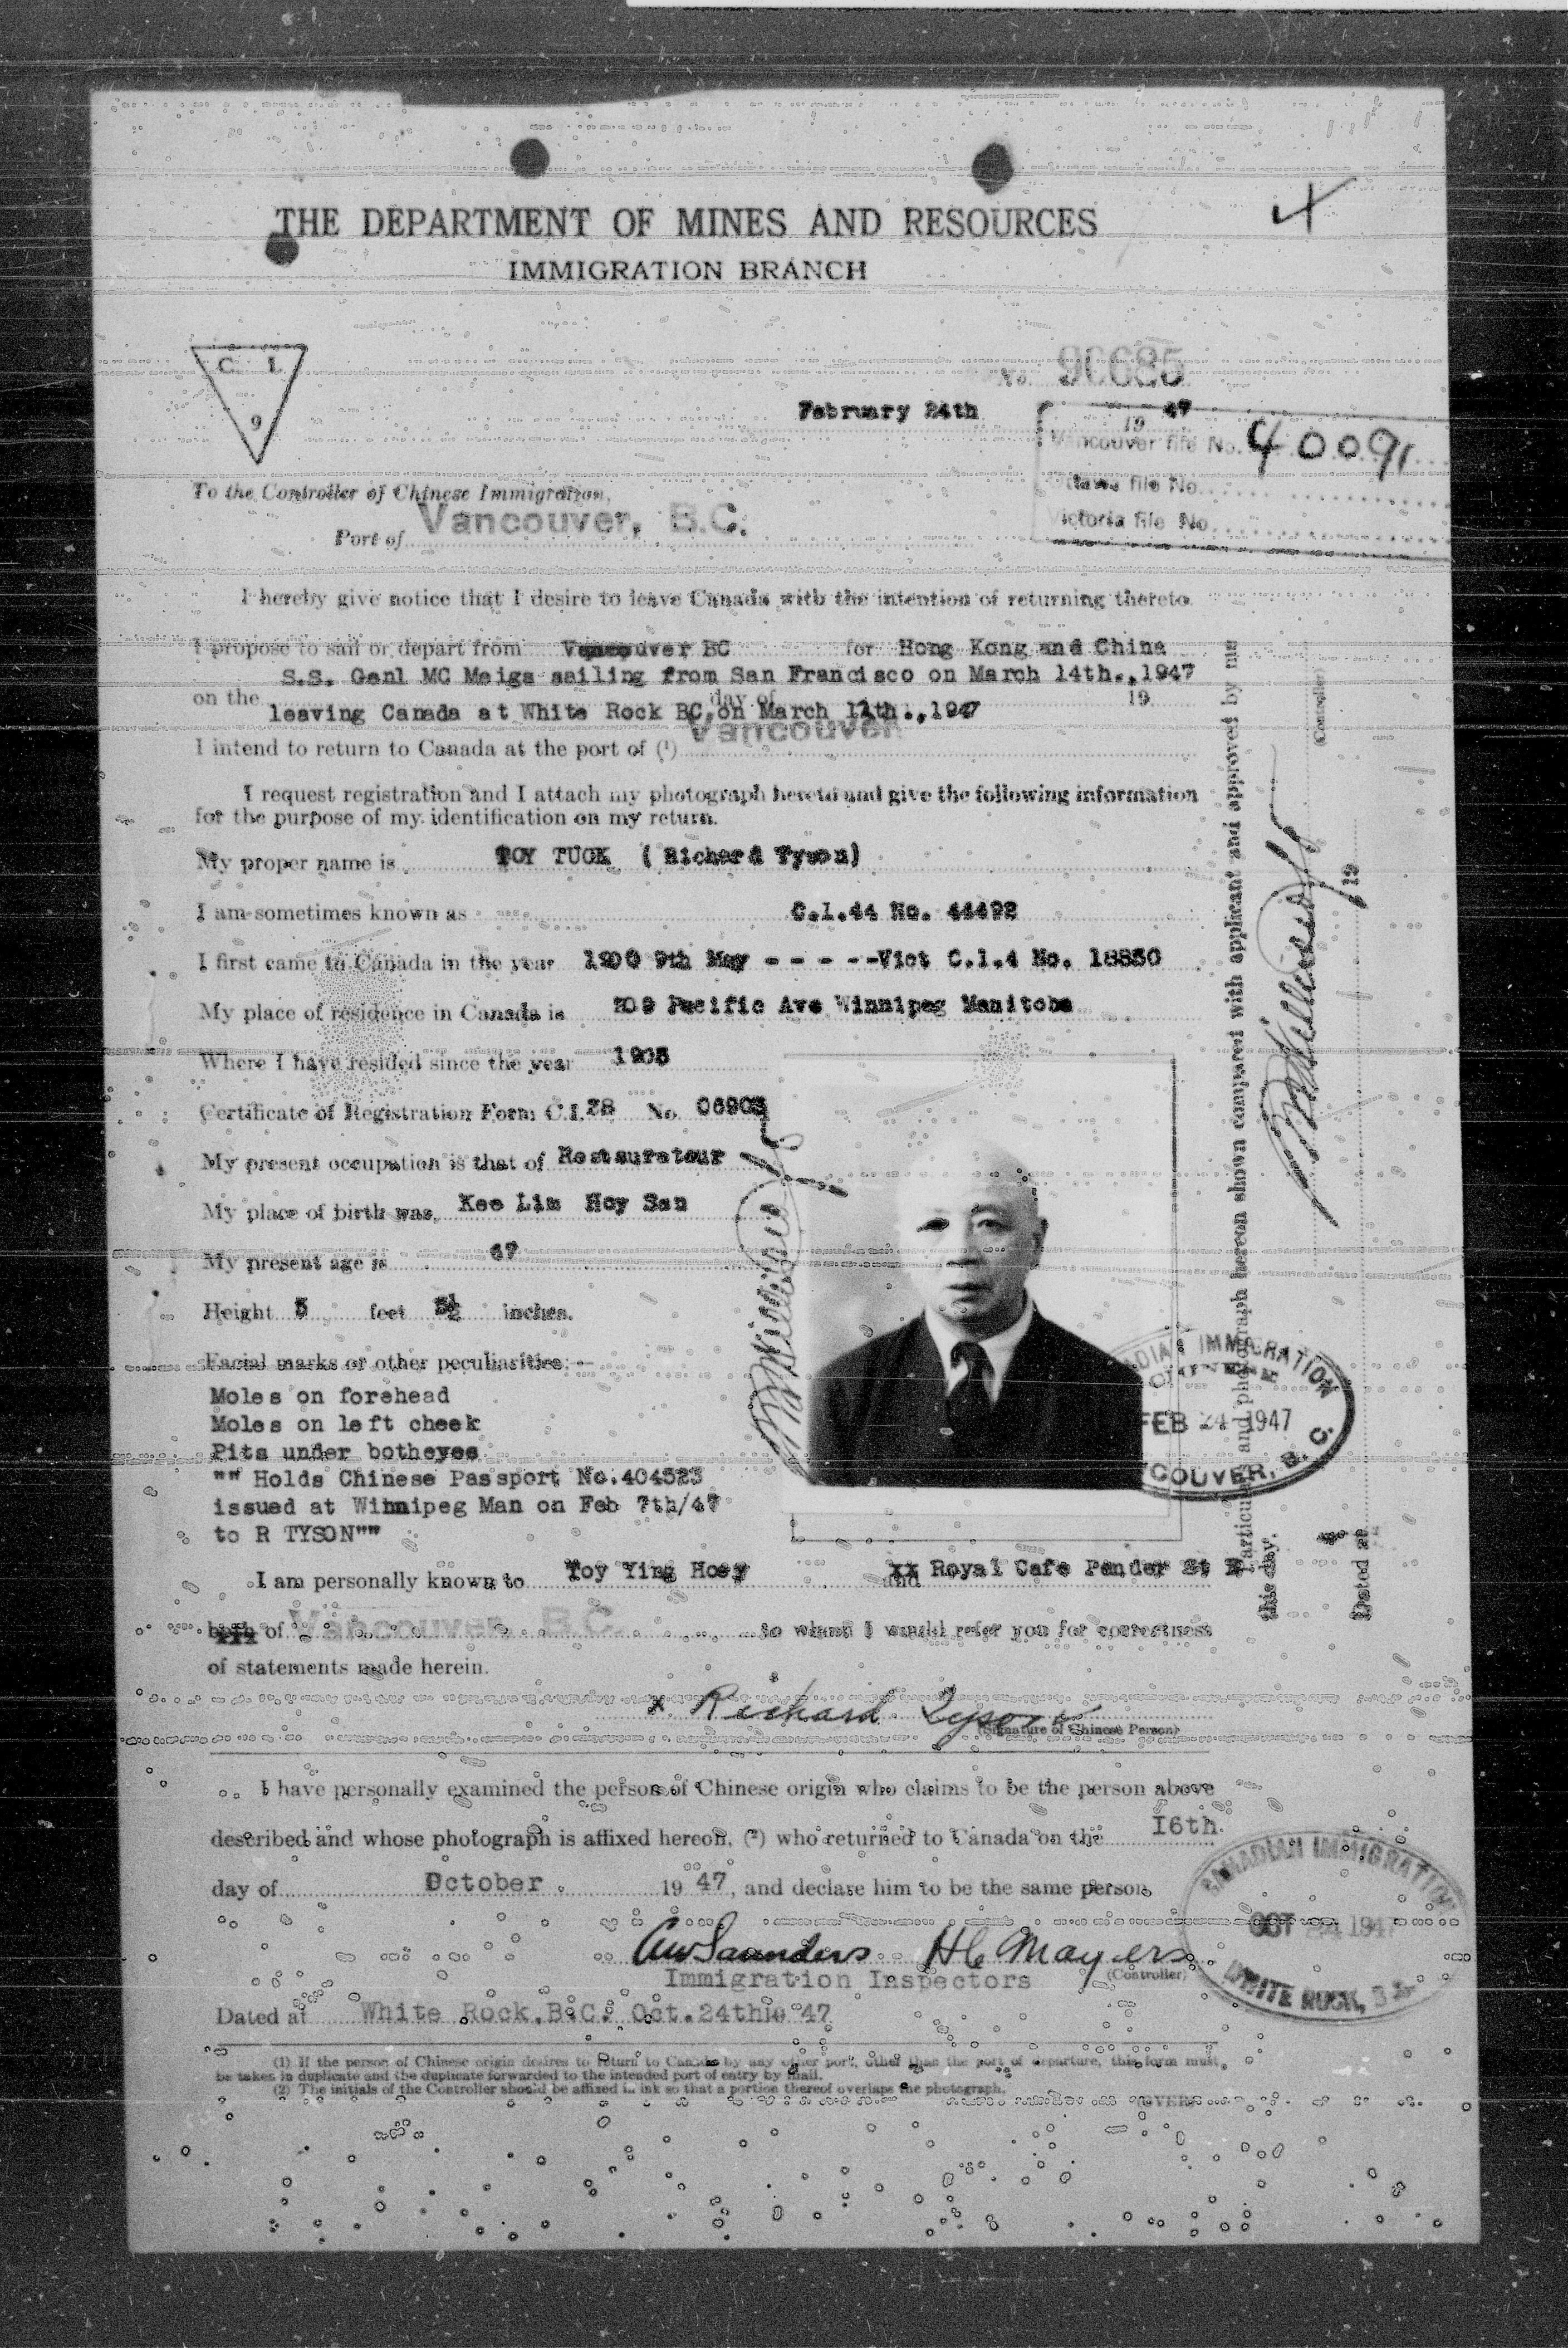 THE DEPARTMENT OF MINES AND RESOURCES
IMMIGRATION BRANCH
C. I.
9
No. 90685
February 24th 19 47
Vancouver file No. 40091
Ottawa file No.
Victoria file No.
To the Controller of Chinese Immigration,
Port of Vancouver, B.C.
I hereby give notice that I desire to leave Canada with the intention of returning thereto.
I propose to sail or depart from Vancouver BC for Hong Kong and China
S.S. Genl MC Meigs sailing from San Francisco on March 14th.,1947
on the day of 19
leaving Canada at White Rock BC, on March 12th.,1947
I intend to return to Canada at the port of (1) Vancouver
I request registration and I attach my photograph hereto and give the following information
for the purpose of my identification on my return.
My proper name is TOY TUCK ( Richard Tyson)
I am sometimes known as C.I.44 No. 44492
I first came to Canada in the year 1900 9th May - - - - -Vict C.1.4 No. 18850
My place of residence in Canada is Pacific Ave Winnipeg Manitoba
Where I have resided since the year 1905
Certificate of Registration Form C.I.28 No. 06903
My present occupation is that of Restaurateur
My place of birth was Kee Lim Hoy San
My present age is 67
Height 5 feet 5½ inches.
Facial marks or other peculiarities:—
Moles on forehead
Moles on left cheek
Pits under botheyes
"" Holds Chinese Passport No.404523
issued at Winnipeg Man on Feb 7th/47
to R TYSON""
CANADIAN IMMIGRATION
FEB 24 1947
VANCOUVER, B. C.
Particulars and photograph hereon shown compared with applicant and approved by me
this day.
(Controller)
Dated at 19
I am personally known to Toy Ying Hoey and xx Royal Cafe Pender St E
both of Vancouver, B.C. to whom I would refer you for correctness
of statements made herein.
x Richard Tyson
(Signature of Chinese Person)
I have personally examined the person of Chinese origin who claims to be the person above
described and whose photograph is affixed hereon, (2) who returned to Canada on the I6th.
day of October. 19 47, and declare him to be the same person.
AW Saunders HC Mayers
Immigration Inspectors (Controller)
CANADIAN IMMIGRATION
OCT 24 1947
WHITE ROCK, B.C.
Dated at White Rock.B.C. Oct.24th19 47
(1) If the person of Chinese origin desires to return to Canada by any other port, other than the port of departure, this form must
be taken in duplicate and the duplicate forwarded to the intended port of entry by mail.
(2) The initials of the Controller should be affixed in ink so that a portion thereof overlaps the photograph.
(OVER)